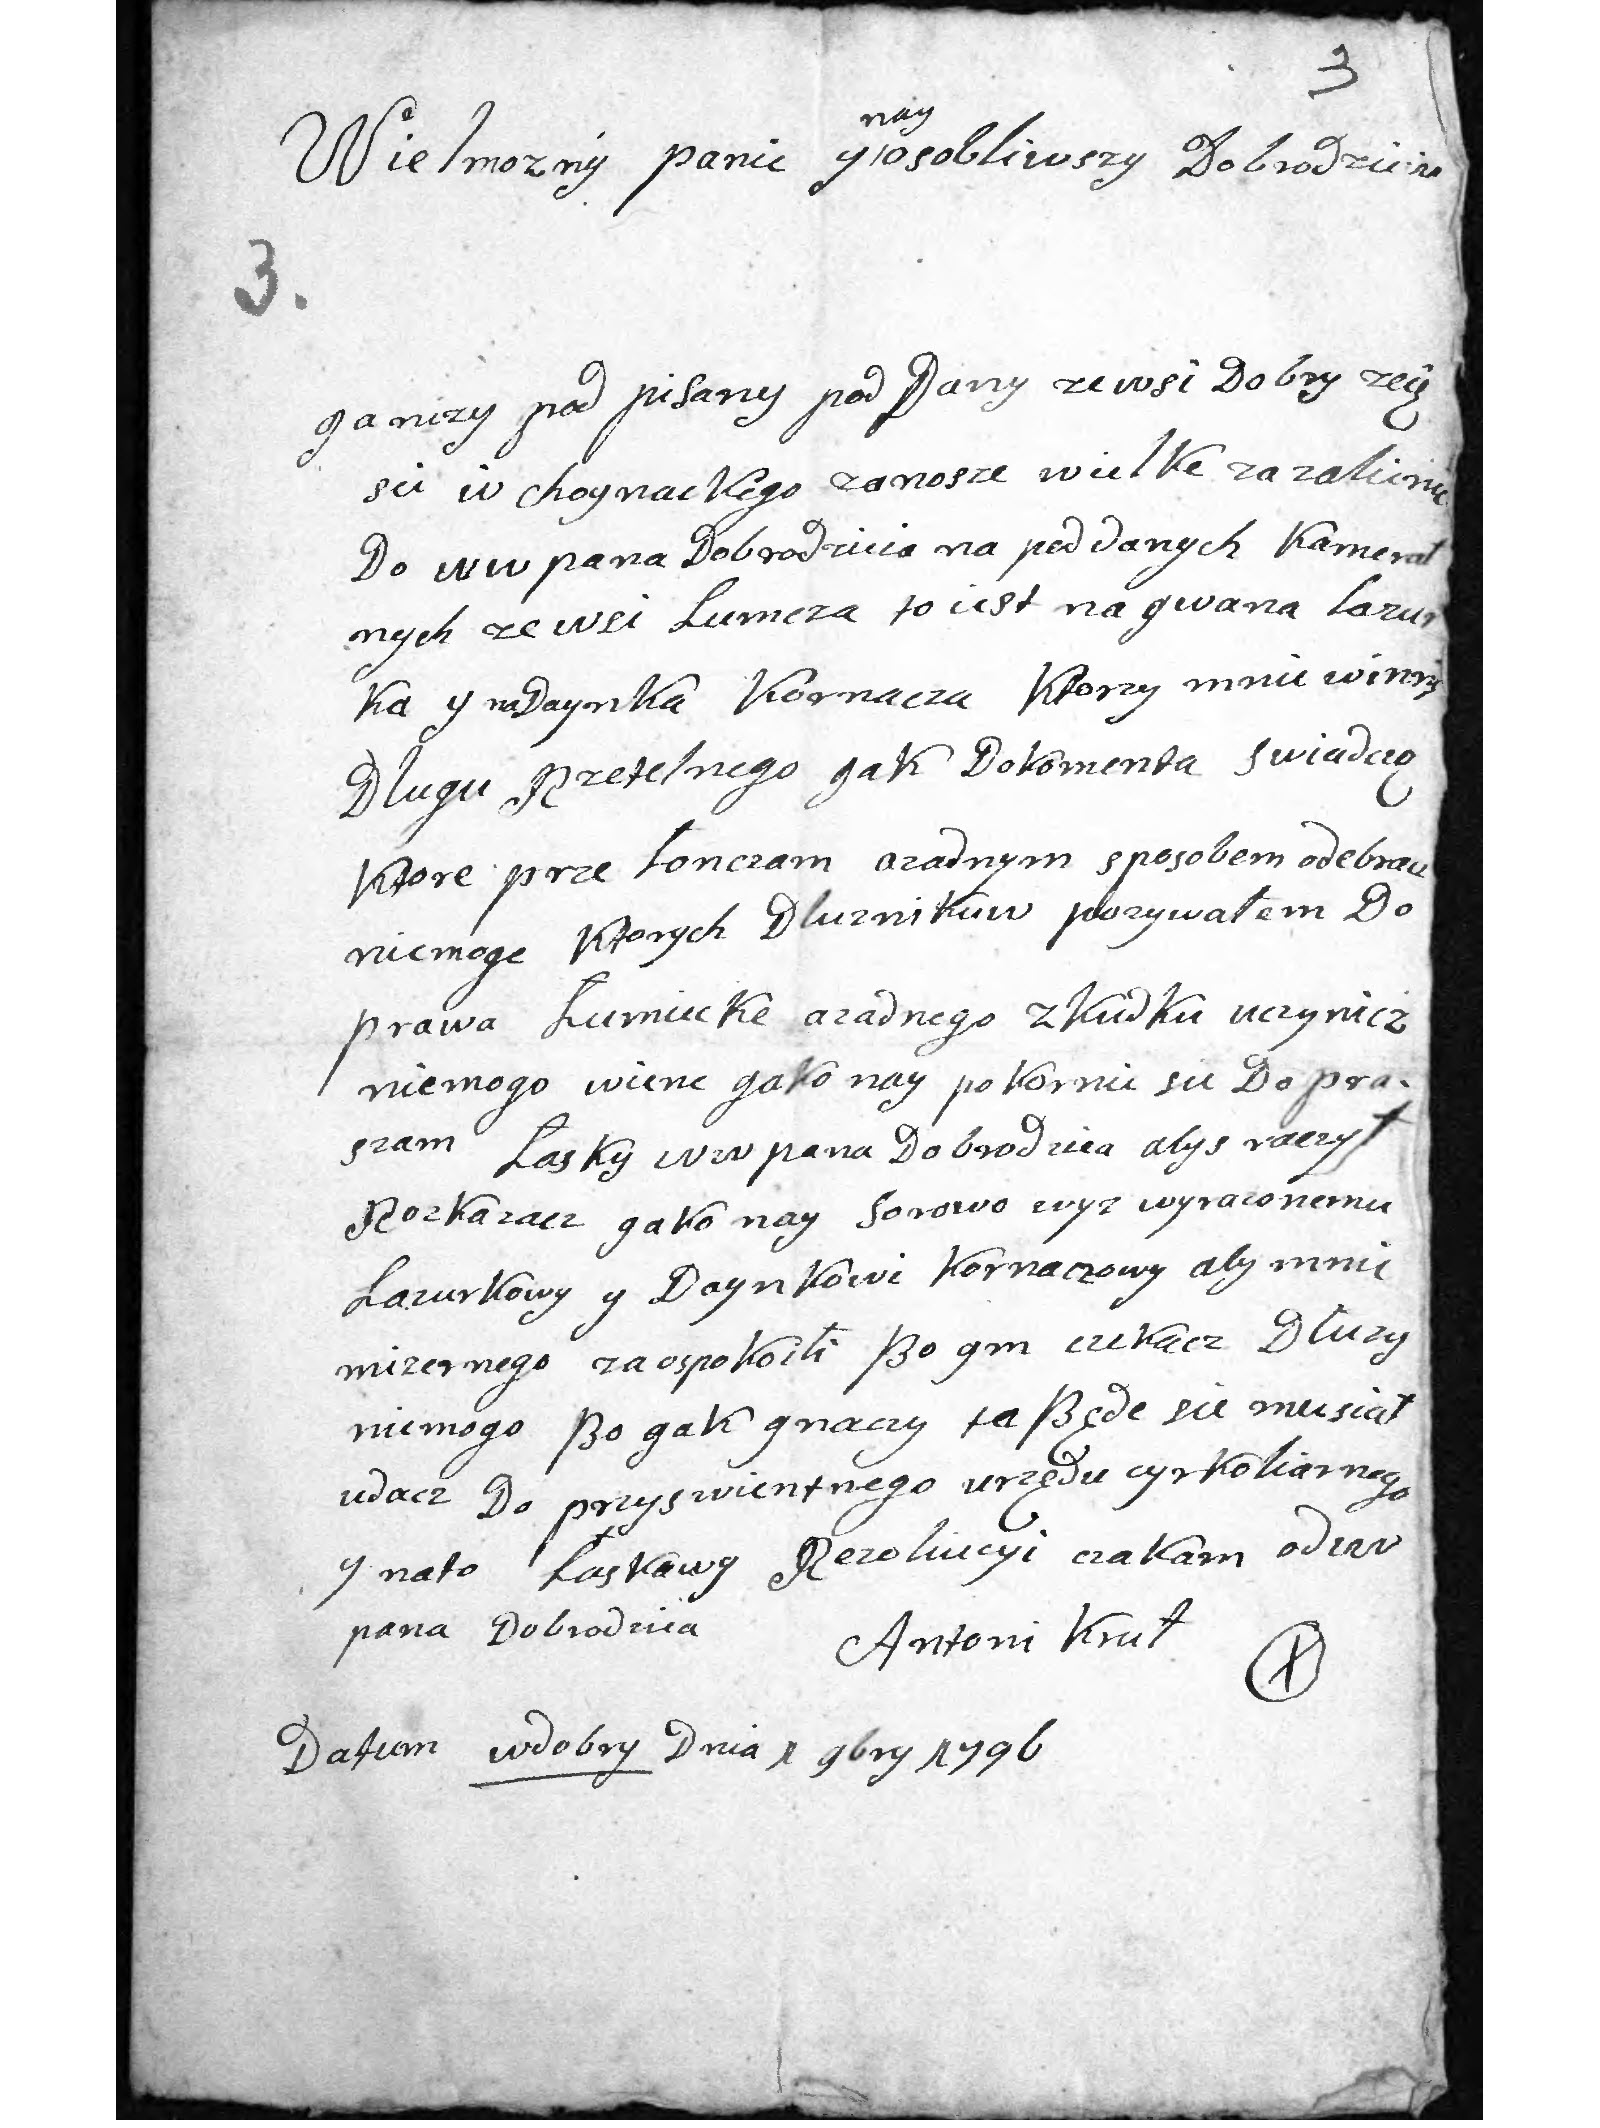 3
nay
Wielmozny panie y osobliwszy Dobrodzieiu
3.
ga nizy pod pisany pod Dany ze wsi Dobry zey
sie w choynackego zanosze wielke zazalienie
Do ww pana Dobrodzieia na pod danych Kameral
nych ze wsi Lumcza to iest na gwana lazur
ka y na Daynka Kornacza Ktorzy mnie winny
Dlugu Rzetelnego gak Dokomenta swiadczo
Ktore prze lonczam azadnym sposobem odebracz
niemoge Ktorych Dluznikuw pozywałem Do
prawa Łumiecke azadnego zkudku uczynicz
niemogo wienc gako nay pokornie sie Do pra-
szam Łasky ww pana Dobrodziea abys raczył
Rozkazacz gako nay Sorowo wyz wyrazonemu
Lazurkowy y Daynkowi Kornaczowy aby mnie
mizernego zaospokoiłi Bo gm czekacz Dłuzy
niemogo Bo gak gnaczy to Będe sie musiał
udacz Do przyswientnego urzędu cyrkoliarnego
y nato Łaskawy Rezoliucyi czakam od ww
pana Dobrodzieia Antoni Kruł
X
Datum wdobry Dnia 1 9bry 1796